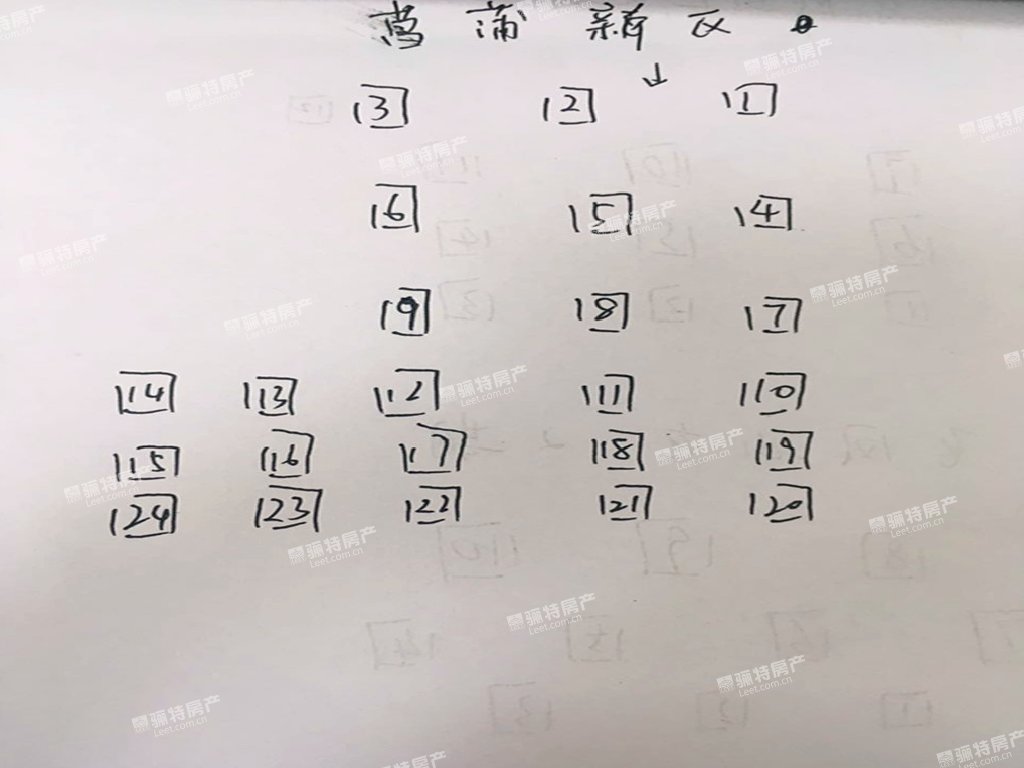 菖蒲新区
3 2 1
6 5 4
9 8 7
14 13 12 11 10
15 16 17 18 19
24 23 22 21 20
骊特房产
Leet.com.cn